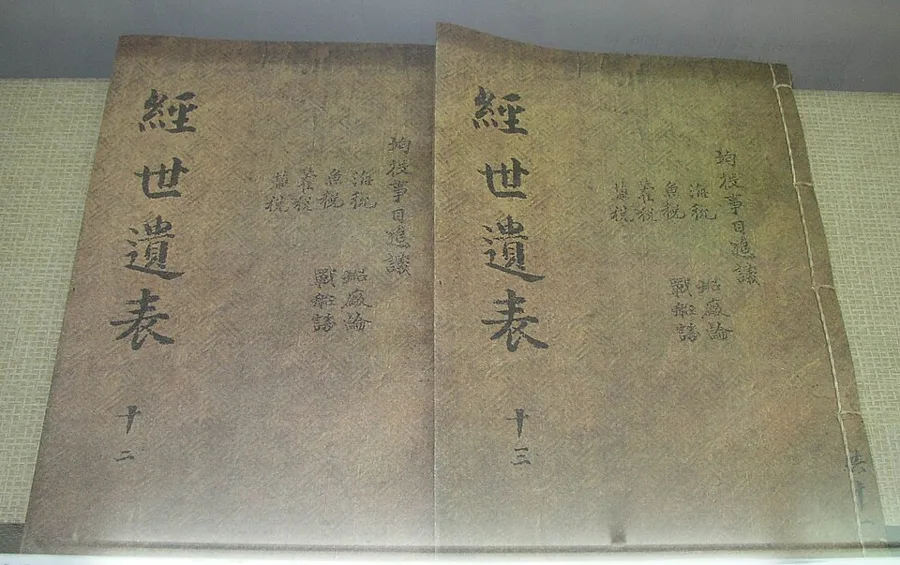 均役事目追議
海稅
魚稅
藿稅
鹽稅
戰船議
經世遺表
十二
均役事目追議
海稅
魚稅
藿稅
鹽稅
戰船議
經世遺表
十三